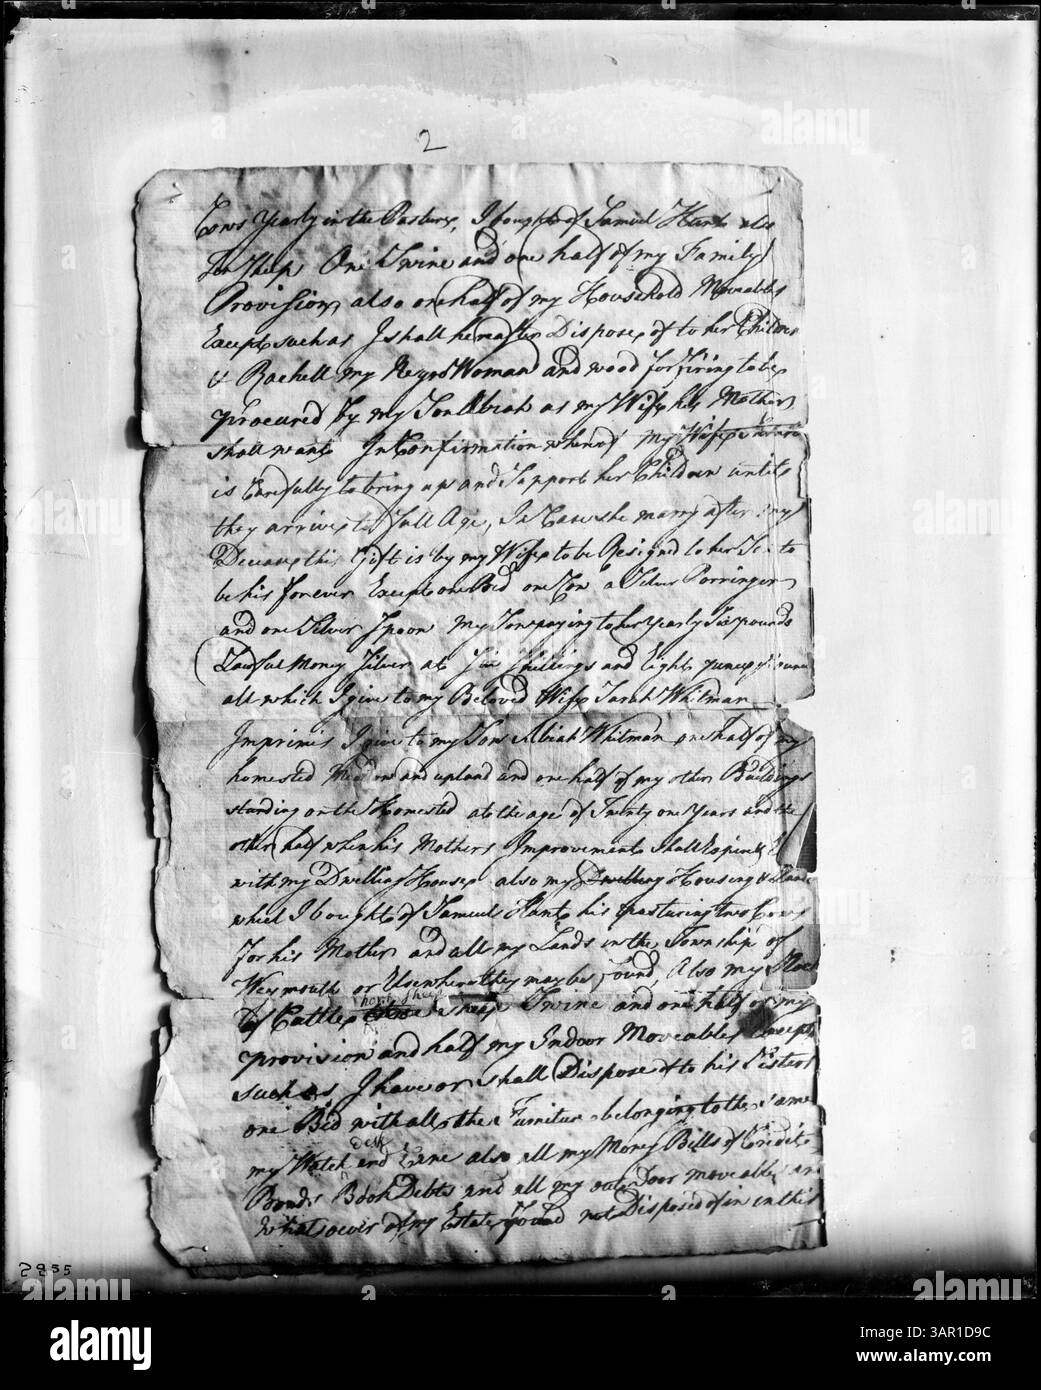 2
Cows Yearly in the Pasture, I bought of Samuel Hunt also
Ten Sheep One Swine and one half of my Family
Provision, also one half of my Household Moveables
Except such as I shall hereafter Dispose of to her Children
& Rachell my Negro Woman and wood for firing to be
procured by my Son Abiah as my Wife his Mother
shall want In Confirmation whereof my Wife
is Carefully to bring up and Support her Children until
they arrive to full Age, In Case she marry after my
Decease this Gift is by my Wife to be Resignd to her Son to
be his forever Except one Bed one Cow a Silver Porringer
and one Silver Spoon my Son paying to her Yearly Six pounds
Lawful Money Silver at Six Shillings and Eight pence
all which I give to my Beloved Wife Sarah Whitman
Imprimis I give to my Son Abiah Whitman one half of my
homested Meadow and upland and one half of my other Buildings
standing on the Homested at the age of Twenty one Years and the
other half when his Mothers Improvement shall Expire
with my Dwelling House also my Dwelling Housing & Land
which I bought of Samuel Hunt his pasturing two Cows
for his Mother and all my Lands in the Township of
Weymouth or Elsewhere they may be found, Also my Stock
horse sheep
of Cattle Swine and one half of my
provision and half my Indoor Moveables Except
such as I have or shall Dispose of to his Sisters
one Bed with all the Furniture belonging to the same
Desk
my Watch and Cane also all my Money Bills of Credit
Bonds Book Debts and all my out Door moveables and
whatsoever of my Estate found not Disposed of in in this
2855
alamy
Image ID: 3AR1D9C
www.alamy.com